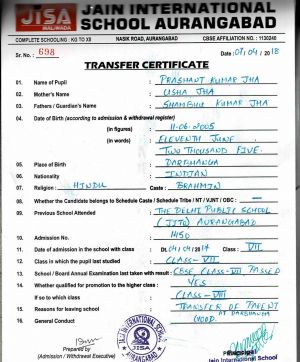 JISA
WALMI ROAD
JAIN INTERNATIONAL
SCHOOL AURANGABAD
COMPLETE SCHOOLING : KG TO XII NASIK ROAD, AURANGABAD CBSE AFFILIATION NO. : 1130240
Sr. No. : 698 Date : 09/04/2018
TRANSFER CERTIFICATE
01. Name of Pupil : PRASHANT KUMAR JHA
02. Mother's Name : USHA JHA
03. Fathers / Guardian's Name : SHAMBHU KUMAR JHA
04. Date of Birth (according to admission & withdrawal register)
(in figures) : 11-06-2005
(in words) : ELEVENTH JUNE,
TWO THOUSAND FIVE.
05. Place of Birth : DARBHANGA
06. Nationality : INDIAN
07. Religion : HINDU Caste : BRAHMIN
08. Whether the Candidate belongs to Schedule Caste / Schedule Tribe / NT / VJNT / OBC : —
09. Previous School Attended : THE DELHI PUBLIC SCHOOL
AURANGABAD
10. Admission No. : 1450
11. Date of admission of school with class : Dt. 04/04/2017 Class : VII
12. Class in which the pupil last studied : CLASS - VII
13. School / Board Annual Examination last taken with result : CBSE, CLASS-VII PASSED
14. Whether qualified for promotion to the higher class : YES
If so to which class : CLASS - VIII
15. Reasons for leaving school : TRANSFER OF PARENT
AT DARBHANGA
16. General Conduct : GOOD.
JAIN INTERNATIONAL SCHOOL
AURANGABAD
Prepared by
(Admission / Withdrawal Executive)
Principal